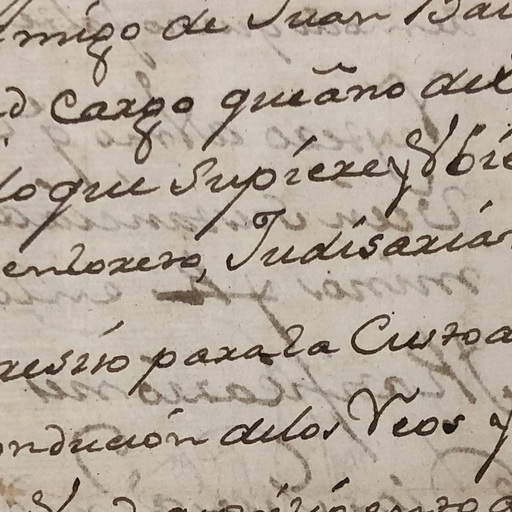 migo de Juan Bau
d Cargo que año del
lo que Supiere y
en lo xexo, Judisaxian
resito para la Custod
onducción de los Reos y